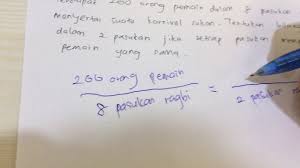 Terdapat 200 orang pemain dalam 8 pasukan
menyertai suatu karnival sukan. Tentukan
dalam 2 pasukan jika setiap pasukan
pemain yang sama.
200 orang pemain
8 pasukan ragbi
=
2 pasukan